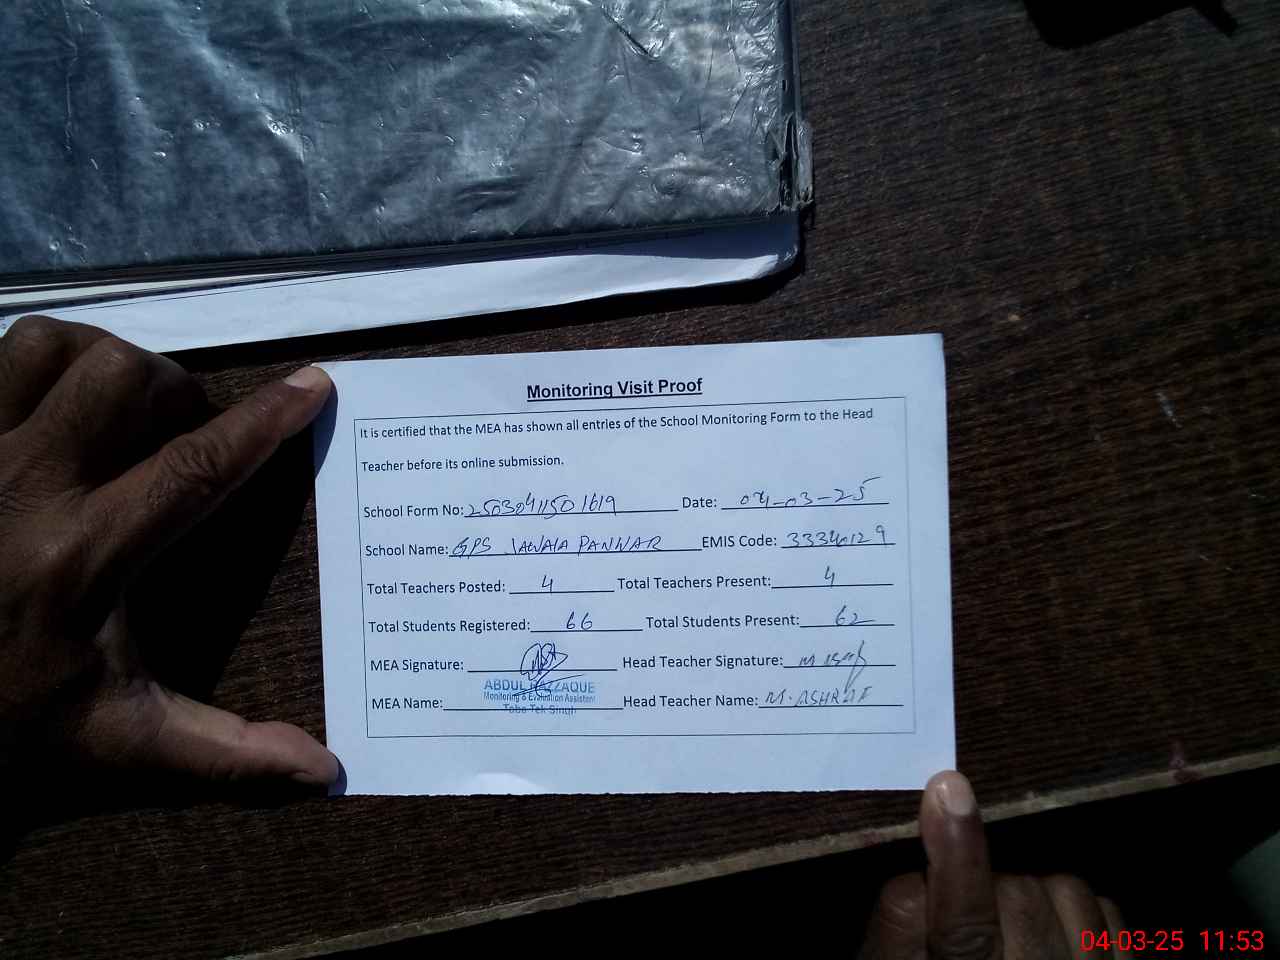 Monitoring Visit Proof
It is certified that the MEA has shown all entries of the School Monitoring Form to the Head
Teacher before its online submission.
School Form No: 25030411501619 Date: 04-03-25
School Name: GPS JAWAIA PANWAR EMIS Code: 33340129
Total Teachers Posted: 4 Total Teachers Present: 4
Total Students Registered: 66 Total Students Present: 62
MEA Signature: Head Teacher Signature:
ABDUL RAZZAQUE
Monitoring & Evaluation Assistent
MEA Name: Head Teacher Name: M. ASHRAF
Toba Tek Singh
04-03-25 11:53